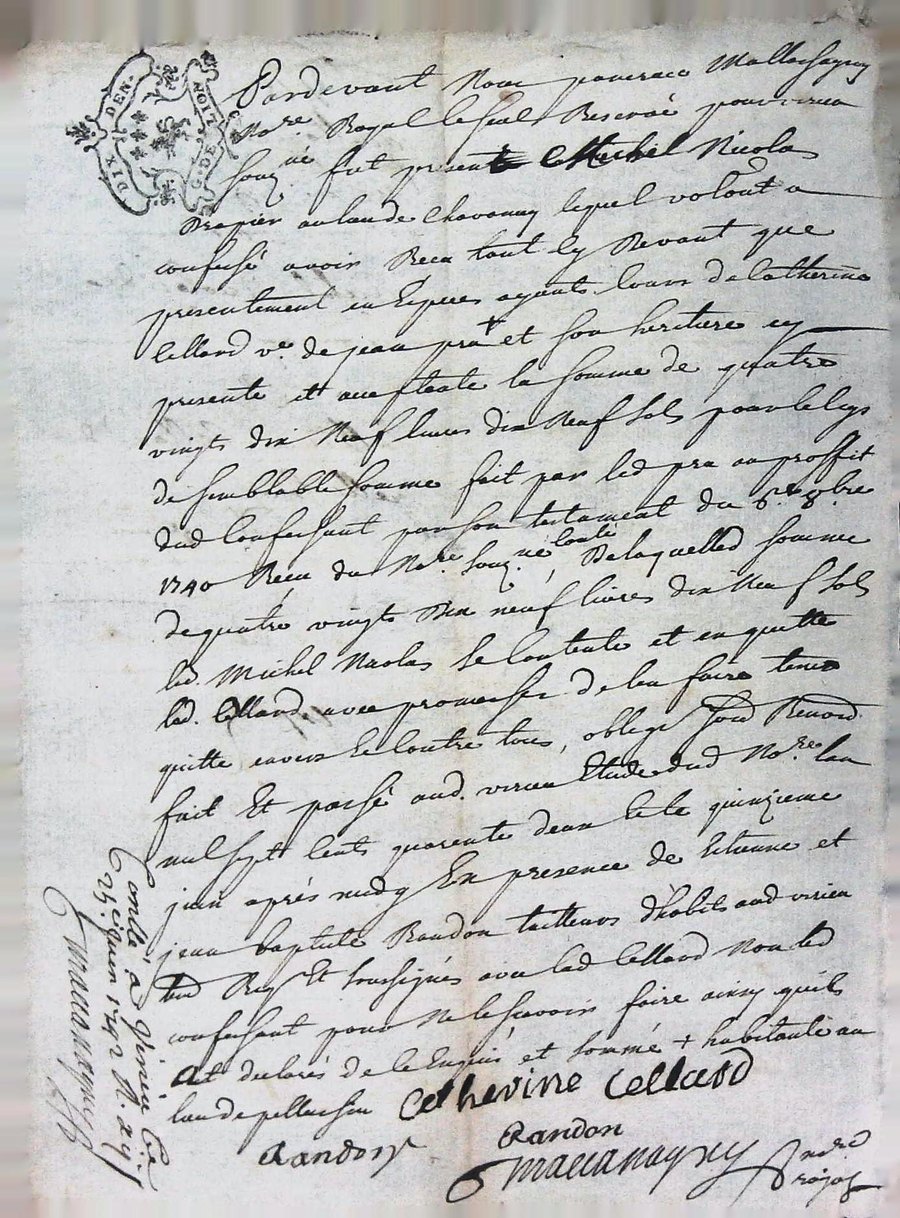 DIX DEN.
G. DE NOIT
Pardevant Nous
No.re Royal le seul Reservé pour virieu
Souz.né fut present Michel Nicolas
Drapier au lieu de Chavanay lequel volont a
confessé avoir Receu tant cy Devant que
presentement en Especes ayants cours de Catherine
Cellard v.e de jean pra et son heritiere cy
presente et acceptante la somme de quatre
vingts dix Neuf livres dix Neuf sols pour le legs
de semblable somme fait par led pra au proffit
dud Confessant par son testament du 6.e 8.bre
1740 Receu du No.re Souz.né De laquelle somme
de quatre vingts Dix neuf livres dix Neuf sols
led. Michel Nicolas se contente et en quitte
lad. Cellard avec promesse de len faire tenir
quitte envers et contre tous, oblige
fait Et passé aud. virieu Etude dud No.re lan
mil sept cents quarente deux et le quinzieme
juin après midy En presence de Etienne et
jean baptiste Randon tailleurs d'habits aud virieu
Et soussignés avec lad Cellard Non led
confessant pour ne le sçavoir faire ainsy quils
ont declarés de ce Enquis et sommé + habitante au
lieu de pellussin Catherine Cellard
Randon Randon
No.re
royal
Conllé a Virieu Ce
25.e juin 1742 R.